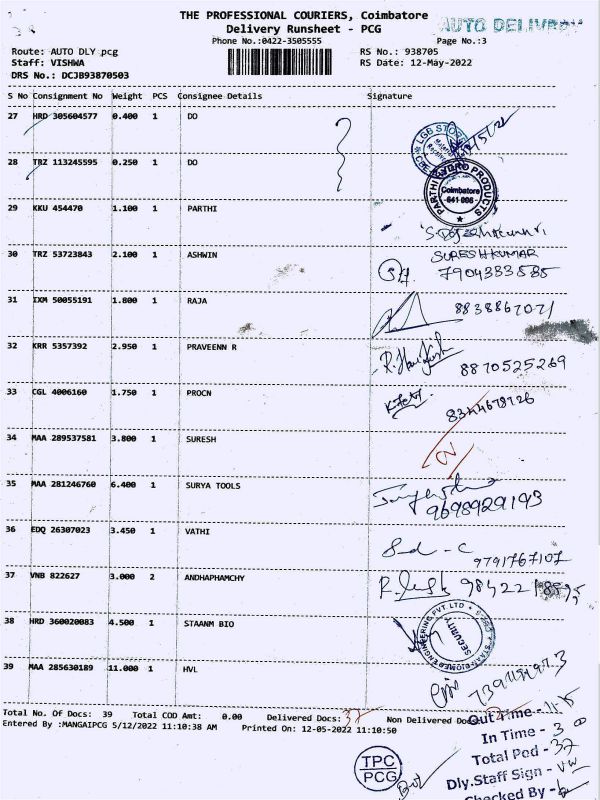 THE PROFESSIONAL COURIERS, Coimbatore
Delivery Runsheet - PCG
AUTO DELIVRY
Phone No.:0422-3505555
Page No.:3
Route: AUTO DLY pcg
RS No.: 938705
Staff: VISHWA
RS Date: 12-May-2022
DRS No.: DCJB93870503
S No Consignment No Weight PCS Consignee Details Signature
27 HRD 305604577 0.400 1 DO
LGB STORES
28 TRZ 113245595 0.250 1 DO
PARTHI HYDRO PRODUCTS
Coimbatore
641 006
29 KKU 454470 1.100 1 PARTHI
30 TRZ 53723843 2.100 1 ASHWIN
SURESHKUMAR
7904333585
31 IXM 50055191 1.800 1 RAJA
8838867071
32 KRR 5357392 2.950 1 PRAVEENN R
8870525269
33 CGL 4006160 1.750 1 PROCN
8344678726
34 MAA 289537581 3.800 1 SURESH
35 MAA 281246760 6.400 1 SURYA TOOLS
9698929193
36 EDQ 26307023 3.450 1 VATHI
Sd - C
9791767107
37 VNB 822627 3.000 2 ANDHAPHAMCHY
38 HRD 360020083 4.500 1 STAANM BIO
SECURITY
39 MAA 285630189 11.000 1 HVL
Total No. Of Docs: 39 Total COD Amt: 0.00 Delivered Docs: 37 Non Delivered Docs: 2
Entered By :MANGAIPCG 5/12/2022 11:10:38 AM Printed On: 12-05-2022 11:10:50
Out Time - 11.15
In Time - 3
Total Pod - 37
Dly.Staff Sign -
Checked By -
TPC
PCG